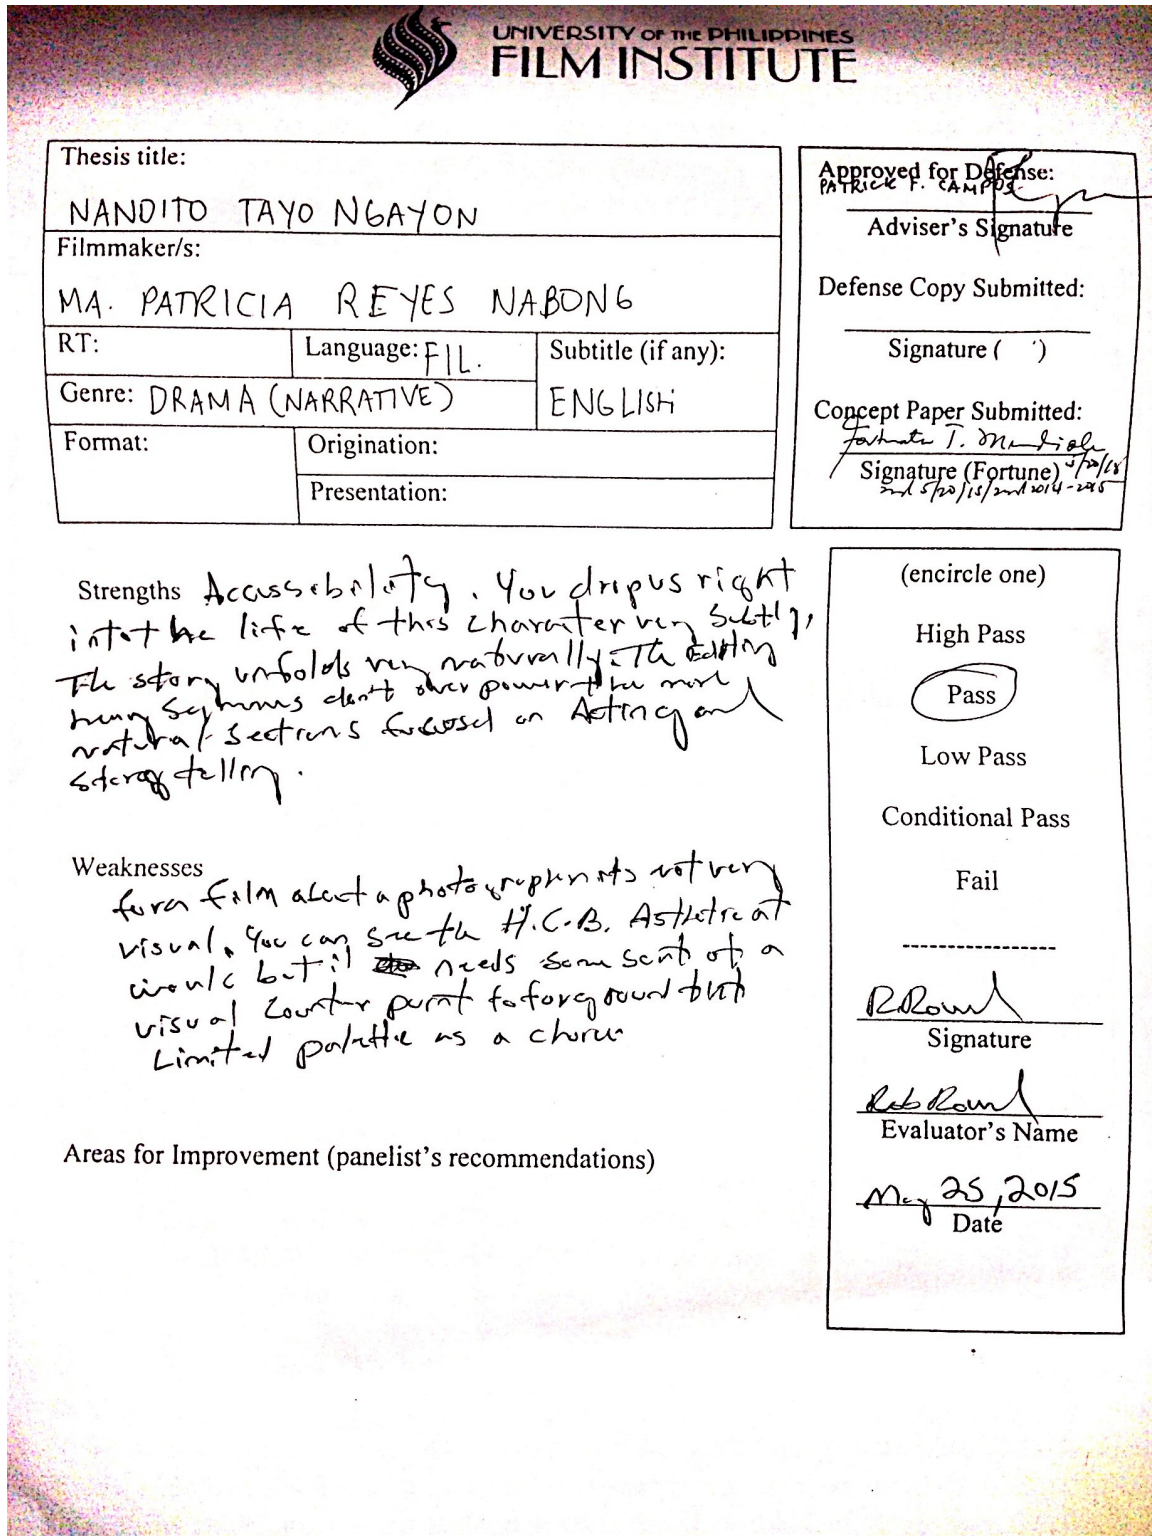 UNIVERSITY OF THE PHILIPPINES
FILM INSTITUTE
Thesis title:
NANDITO TAYO NGAYON
Filmmaker/s:
MA. PATRICIA REYES NABONG
RT:
Language: FIL.
Subtitle (if any):
ENGLISH
Genre: DRAMA (NARRATIVE)
Format:
Origination:
Presentation:
Approved for Defense:
PATRICK F. CAMPOS
Adviser's Signature
Defense Copy Submitted:
Signature ( )
Concept Paper Submitted:
Signature (Fortune)
2nd 5/20/15/2nd 2014-2015
Strengths Accussebility. You drop us right
into the life of this character very subtly,
The story unfolds very naturally. The Editing
heavy don't over power the more
natural sections focused on Acting and
story telling.
Weaknesses
for a film about a photographer its not very
visual. You can see the H.C.B. at
but it needs some sort of a
visual counter point to
Limited palette as a
Areas for Improvement (panelist's recommendations)
(encircle one)
High Pass
Pass
Low Pass
Conditional Pass
Fail
----------------
Signature
Rob
Evaluator's Name
May 25, 2015
Date